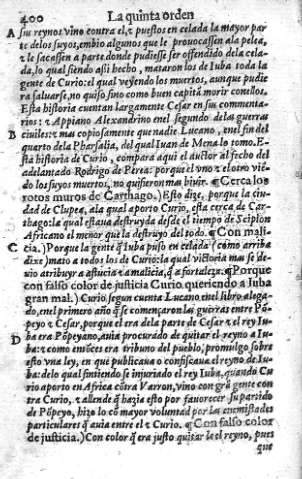 400 La quinta orden
A su reyno: vino contra el, z puestos en celada la mayor par
te delos suyos, embio algunos que le prouocassen ala pelea,
z le sacassen a parte donde pudiesse ser offendido dela cela-
da, lo qual siendo assi hecho, mataron los de Iuba toda la
gente de Curio: el qual veyendo los muertos, aunque pudie
ra saluarse, no quiso sino como buen capitã morir conellos.
Esta historia cuentan largamente Cesar en sus commenta-
rios: z Appiano Alexandrino enel segundo de las guerras
B ciuiles: z mas copiosamente que nadie Lucano, enel fin del
quarto dela Pharsalia, del qual Iuan de Mena lo tomo. E-
sta historia de Curio, compara aqui el auctor al fecho del
adelantado Rodrigo de Perea: porque el vno z el otro vié-
do los suyos muertos, no quisieron mas biuir. ¶ Cerca los
rotos muros de Carthago.) Esto dize, porque la ciu-
dad de Clupea, ala qual aporto Curio, esta cerca de Car-
thago: la qual estaua destruyda desde el tiempo de Scipion
Africano el menor que la destruyo del todo. ¶ Con mali-
C cia.) Porque la gente q̃ Iuba puso en celada (como arriba
dixe) mato a todos los de Curio: la qual victoria mas se de-
uio atribuyr a astucia z a malicia, q̃ a fortaleza. ¶ Porque
con falso color de justicia Curio queriendo a Iuba
gran mal.) Curio segun cuenta Lucano enel libro alega-
do, enel primero año q̃ se començaron las guerras entre Põ-
peyo z Cesar, porque el era dela parte de Cesar z el rey Iu-
D ba era Põpeyano, auia procurado de quitar el reyno a Iu-
ba: z como entõces era tribuno del pueblo, promulgo sobre
esto vna ley, en que publicaua o confiscaua el reyno de Iu-
ba: delo qual sintiendo se injuriado el rey Iuba, quando Cu
rio aporto en Africa cõtra Varron, vino con grã gente con
tra Curio, z allende q̃ hazia esto por fauorecer su partido
de Põpeyo, hizo lo cõ mayor voluntad por las enemistades
particulares q̃ auia entre el z Curio. ¶ Con falso color
de justicia.) Con color q̃ era justo quitar le el reyno, pues
que